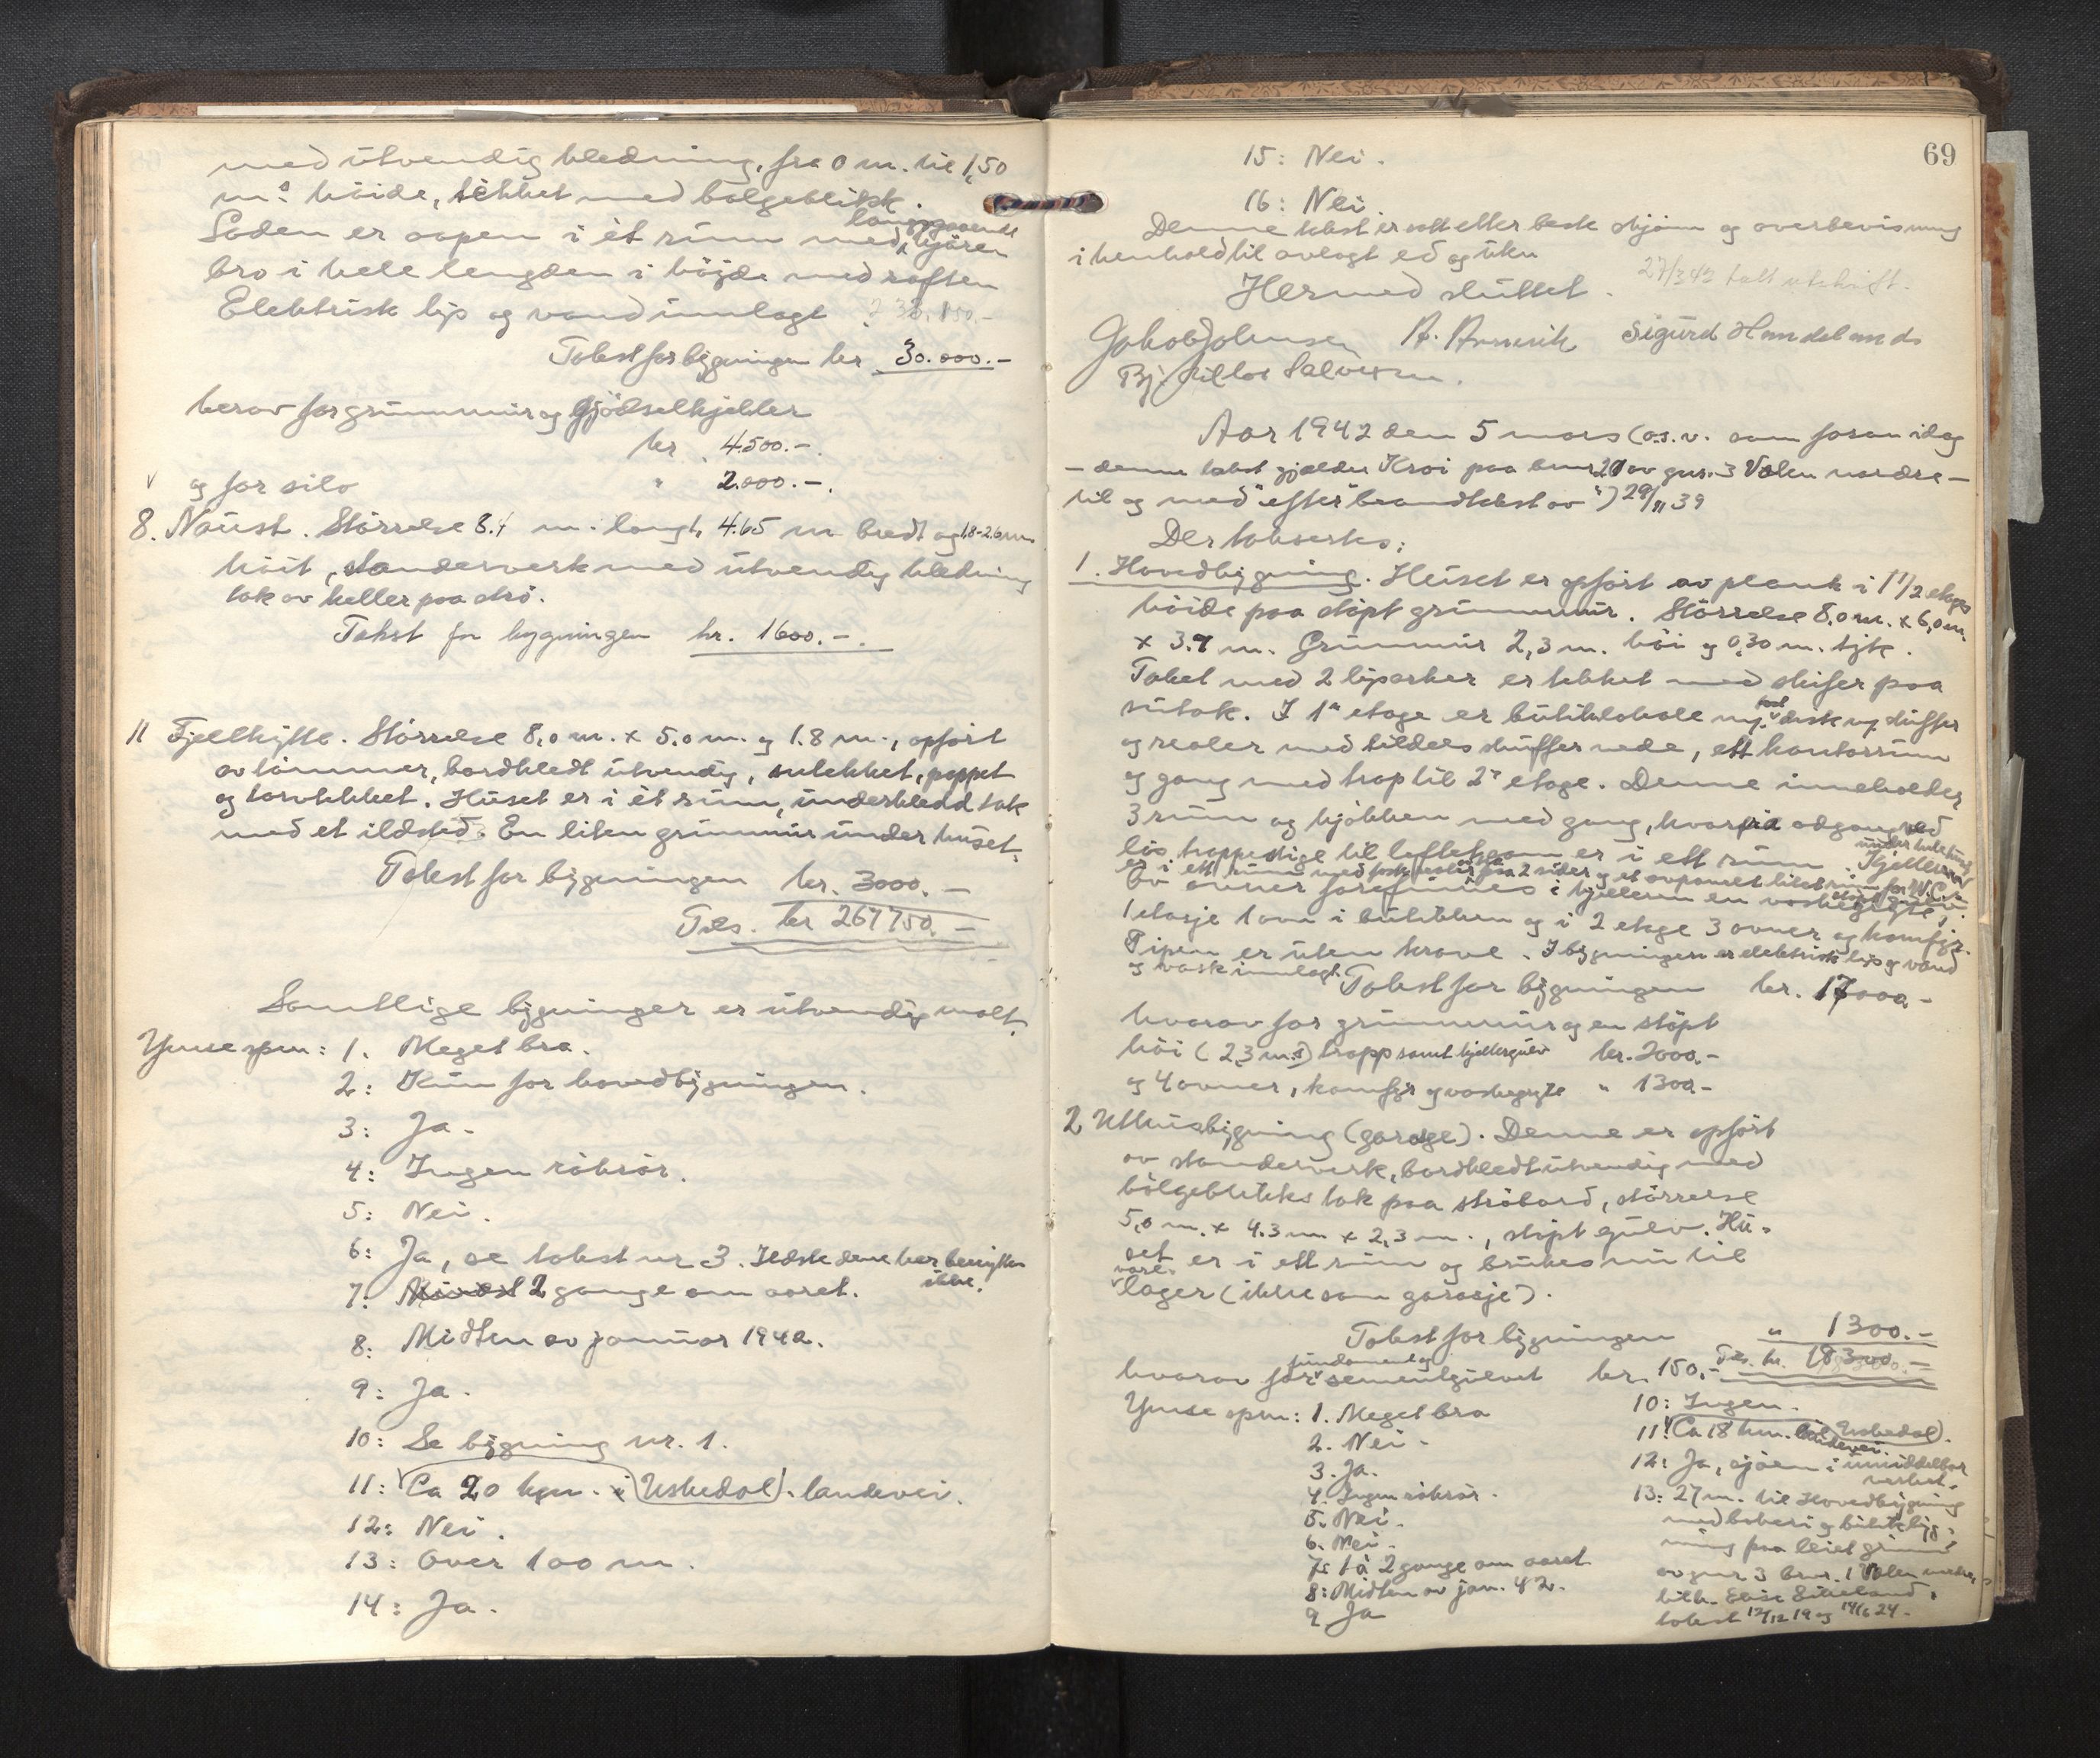 med utvendig kledning, fra 0 m. til 1,50
m.s höide, tekket med bølgeblikk.
Laden er aapen i èt rum med langsgaaende kjöre
bro i hele lengden i høide med raften
Elektrisk lys og vand innlagt
Takst for bygningen kr. 30.000.-
herav for grunnmur og gjødselkjeller
kr. 4500.-
og for silo " 2.000.-
8. Naust. Störrelse 8.4 m. langt, 4.65 m bredt og 1.8-2.6 m.
höit, standerverk med utvendig kledning
tak av heller paa strø.
Takst for bygningen kr. 1600.-
11 Fjellhytte. Störrelse 8,0 m. x 5.0 m. og 1.8 m., opført
av tømmer, bordkledt utvendig, sutekket, pappet
og torvtekket. Huset er i èt rum, underkledd tak
med et ildsted. En liten grunnmur under huset.
Takst for bygningen kr. 3000.-
Tils. kr 267750.-
Samtlige bygninger er utvendig malt.
Ymse spm: 1. Meget bra.
2: Kun for hovedbygningen.
3: Ja.
4: Ingen rökrör.
5: Nei.
6: Ja, se takst nr 3. Ildstedene her benyttes ikke.
7: 2 gange om aaret.
8: Midten av januar 1942.
9: Ja.
10: Se bygning nr. 1.
11: Ca 20 km. i (Uskedal). landevei.
12: Nei.
13: Over 100 m.
14: Ja.
69
15: Nei.
16: Nei
Denne takst er satt etter beste skjönn og overbevisning
i henhold til avlagt ed og
27/3 42 tatt utskrift.
Hermed sluttet.
Jakob Johnsen Sigurd Handeland
Salvesen.
Aar 1942 den 5 mars (o.s.v. som foran idag
- denne takst gjelder Kroi paa bnr 20 av gnr. 3 Valen nordre -
til og med "efter brandtakst av") 29/11 39
Der taksertes:
1. Hovedbygning. Huset er opført av plank i 1 1/2 etages
höide paa støpt grunnmur. Störrelse 8,0 m. x 6,0 m.
x 3.7 m. Grunnmur 2,3 m. höi og 0,30 m. tyk.
Taket med 2 liparker er tekket med skifer paa
sutak. I 1ste etage er butiklokale m/ fast disk m/ skuffer
og realer med tildels skuffer nede, ett kontorrum
og gang med trap til 2n etage. Denne inneholder
3 rum og kjökken med gang, hvorfra adgang ved
lös trappestige til loftet som er i ett rum. Kjelleren under hele huset
er i ett rum med faste realer paa 2 sider og et avpanelt litet rum for W.C.
Av ovner forefinnes i kjelleren en vaskegryte, i
1 etasje 1 ovn i butikken og i 2 etage 3 ovner og komfyr.
Pipen er uten krave. I bygningen er elektrisk lys og vand
og vask innlagt. Takst for bygningen kr. 17000.-
hvorav for grunnmur og en støpt
höi (2,3 m.s) trapp samt kjellergulv kr. 2000.-
og 4 ovner, komfyr og vaskegryte " 1300.-
2 Uthusbygning (garasje). Denne er opført
av standerverk, bordkledt utvendig med
bölgeblikks tak paa ströbord, störrelse
5,0 m. x 4.3 m x 2,3 m., støpt gulv. Hu-
set er i ett rum og brukes nu til
vare-
lager (ikke som garasje).
Takst for bygningen " 1300.-
Tils. kr. 18300.-
hvorav for fundament og sementgulvet kr. 150.-
Ymse spm: 1. Meget bra
2. Nei.
3. Ja.
4. Ingen rökrör.
5. Nei.
6. Nei.
7: 1 à 2 gange om aaret
8: Midten av jan. 42.
9 Ja
10: Ingen.
11: Ca 18 km. til (Uskedal). landevei.
12: Ja, sjöen i umiddelbar nærhet.
13: 27 m. til Hovedbygning
med bakeri og butikkbyg-
ning paa leiet grund
av gnr 3 bnr. 1 Valen nedre,
tilh. Elise Eikeland,
takst 12/12 19 og 14/6 24.